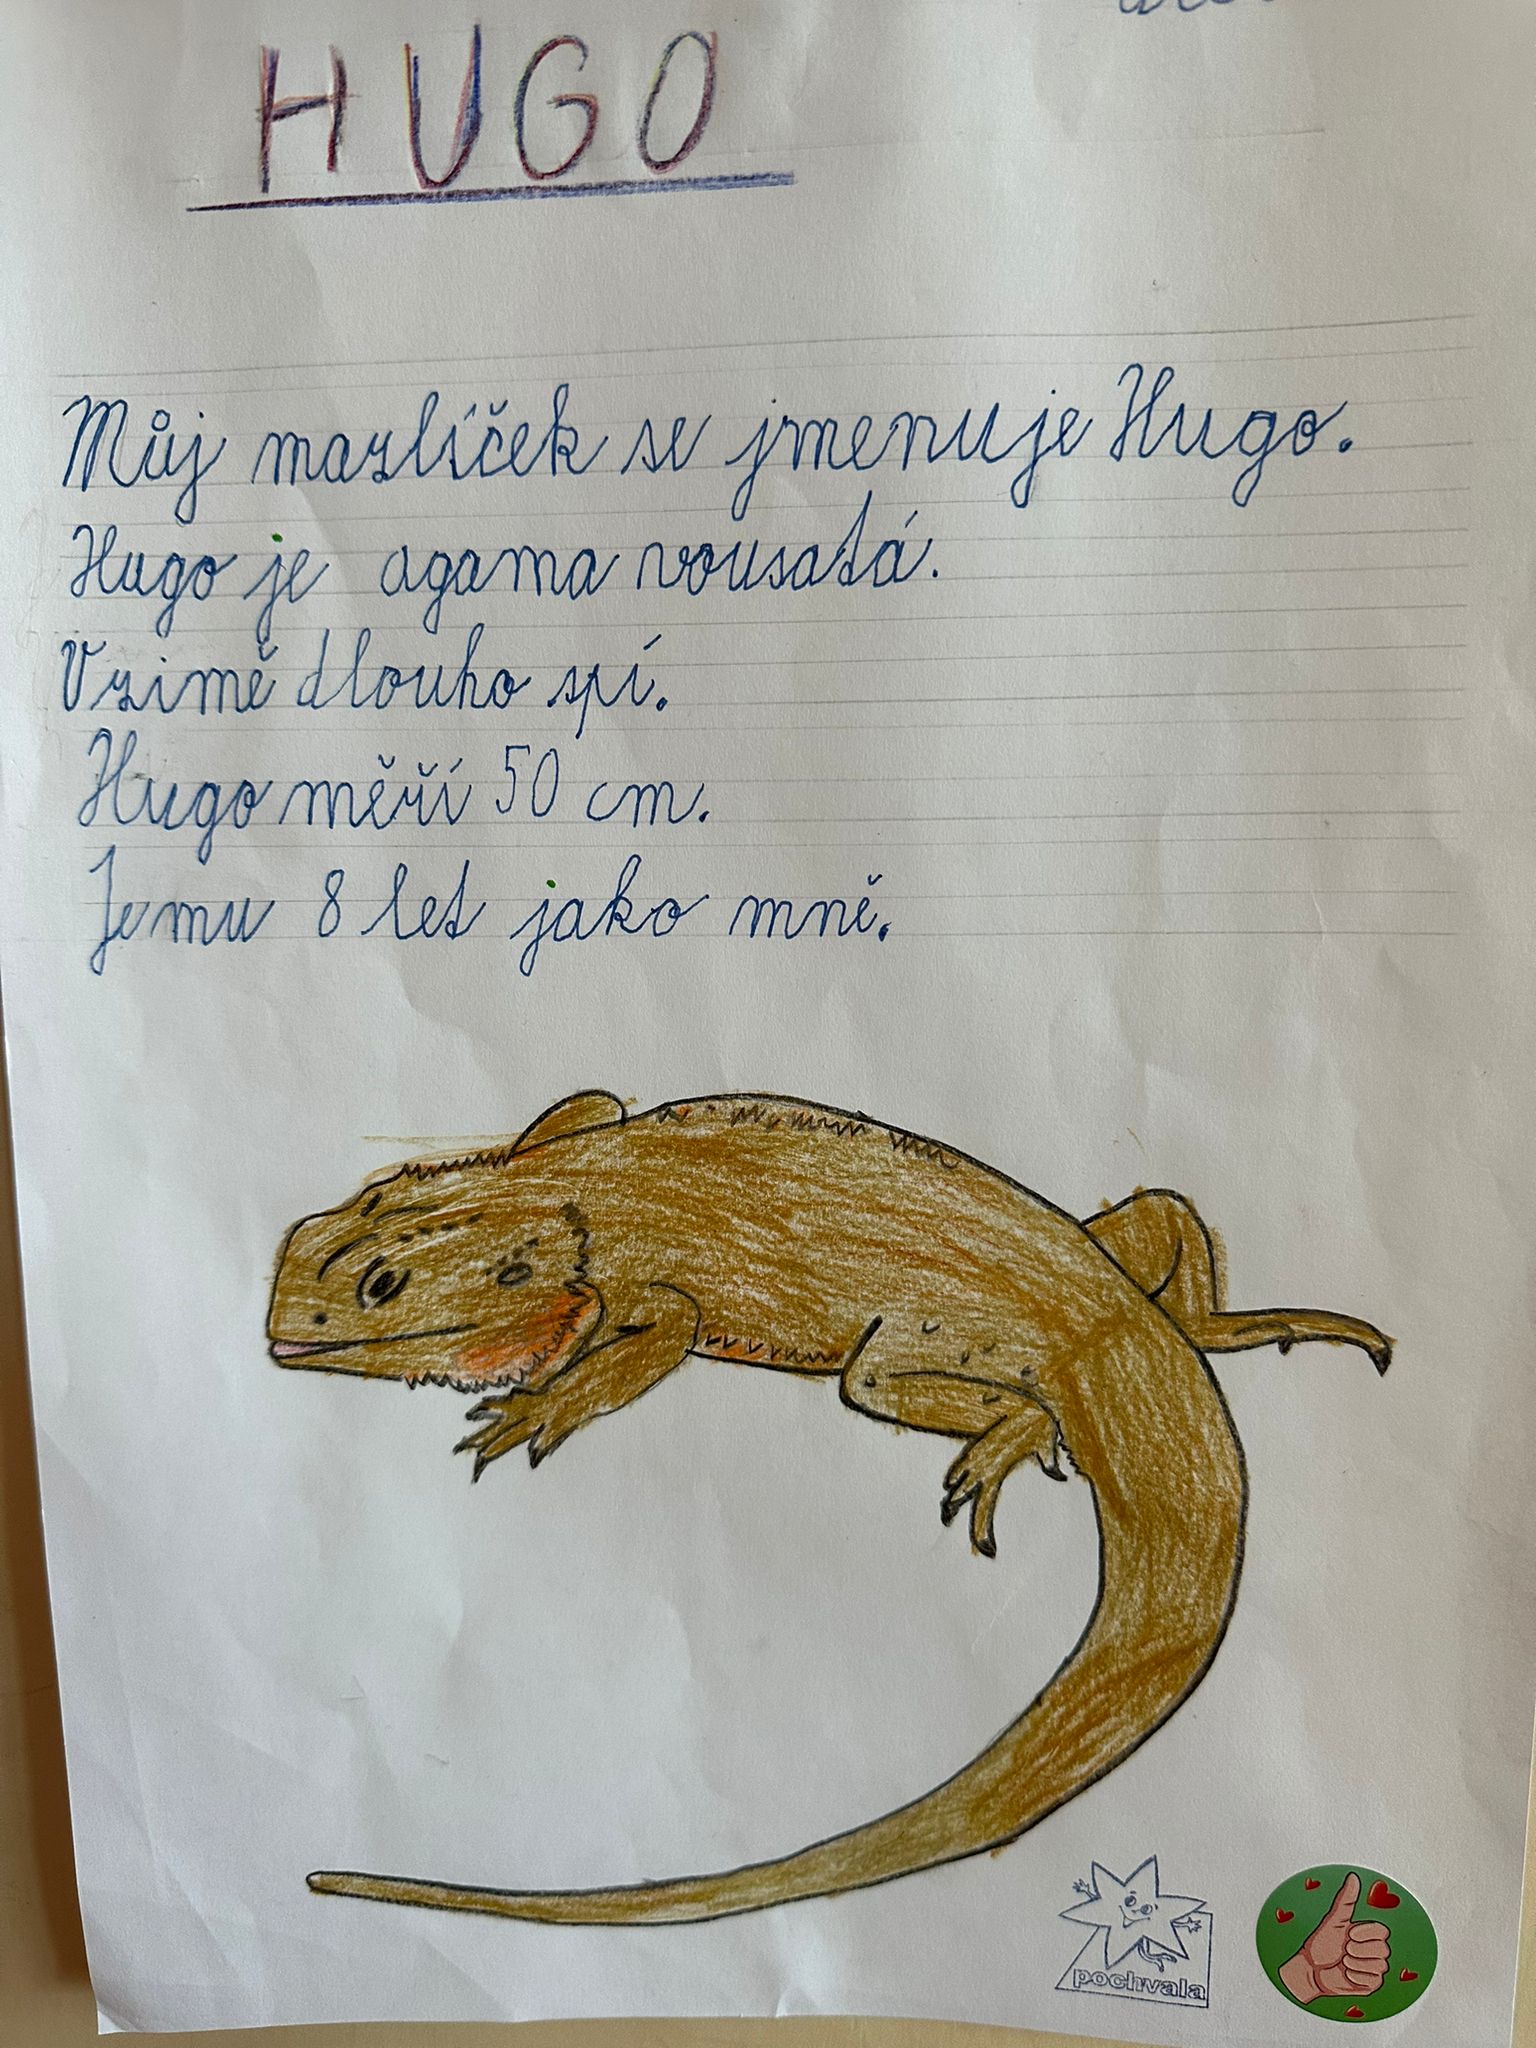 HUGO
Můj mazlíček se jmenuje Hugo.
Hugo je agama vousatá.
V zimě dlouho spí.
Hugo měří 50 cm.
Je mu 8 let jako mně.
pochvala